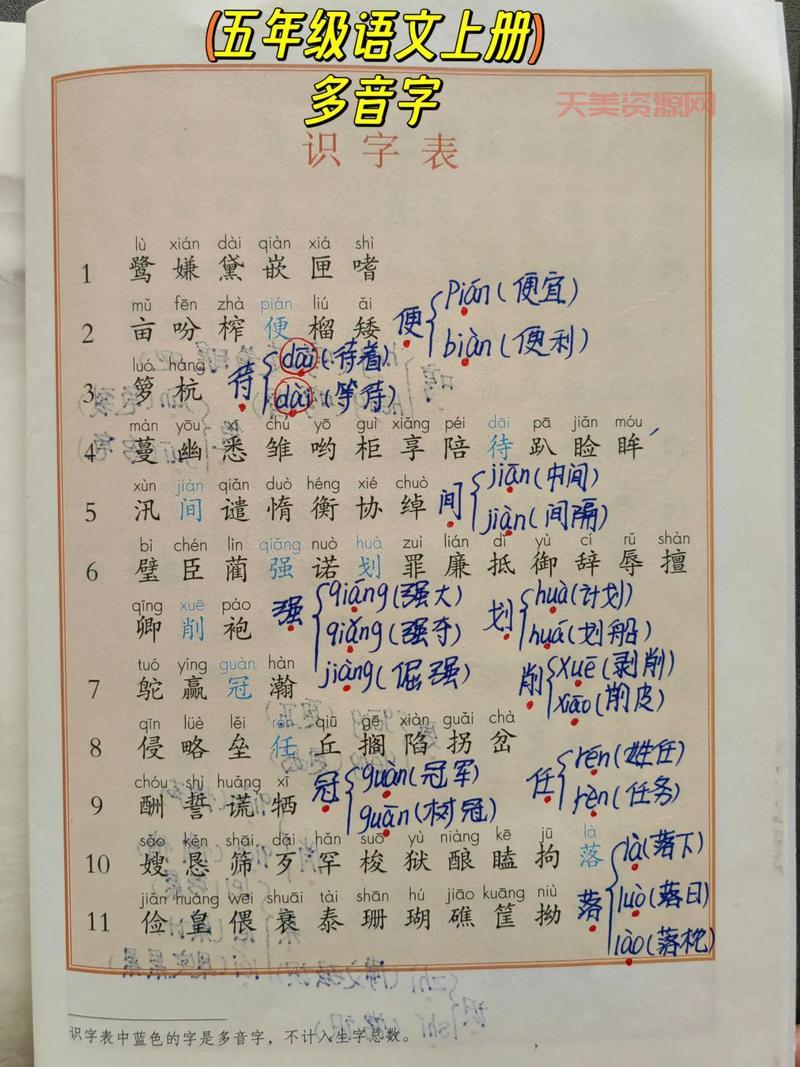 (五年级语文上册)
多音字
天美资源网
识字表
lù xián dài qiàn xiá shì
1 鹭 嫌 黛 嵌 匣 嗜
mǔ fēn zhà pián liú ǎi
2 亩 吩 榨 便 榴 矮
便 pián(便宜)
biàn(便利)
luó háng
3 箩 杭
待 dāi(待着)
dài(等待)
màn yōu xī chú yō guì xiǎng péi dāi pā jiǎn móu
4 蔓 幽 悉 雏 哟 柜 享 陪 待 趴 睑 眸
xùn jiàn qiǎn duò héng xié chuò
5 汛 间 谴 惰 衡 协 绰
间 jiān(中间)
jiàn(间隔)
bì chén lìn qiǎng nuò huà zuì lián dǐ yù cí rǔ shàn
6 璧 臣 蔺 强 诺 划 罪 廉 抵 御 辞 辱 擅
qīng xuē páo
卿 削 袍
强 qiáng(强大)
qiǎng(强夺)
jiàng(倔强)
划 huà(计划)
huá(划船)
削 xuē(剥削)
xiāo(削皮)
tuó yíng guàn hàn
7 鸵 赢 冠 瀚
qīn lüè lěi rén qiū gē xiàn guǎi chà
8 侵 略 垒 任 丘 搁 陷 拐 岔
chóu shì huǎng xī
9 酬 誓 谎 牺
冠 guàn(冠军)
guān(树冠)
任 rén(姓任)
rèn(任务)
sǎo kěn shāi dǎi hǎn suō yù niàng kē jū là
10 嫂 恳 筛 歹 罕 梭 狱 酿 瞌 拘 落
jiǎn huáng wēi shuāi tài shān hú jiāo kuāng niù
11 俭 皇 偎 衰 泰 珊 瑚 礁 筐 拗
落 là(落下)
luò(落日)
lào(落枕)
识字表中蓝色的字是多音字，不计入生字总数。